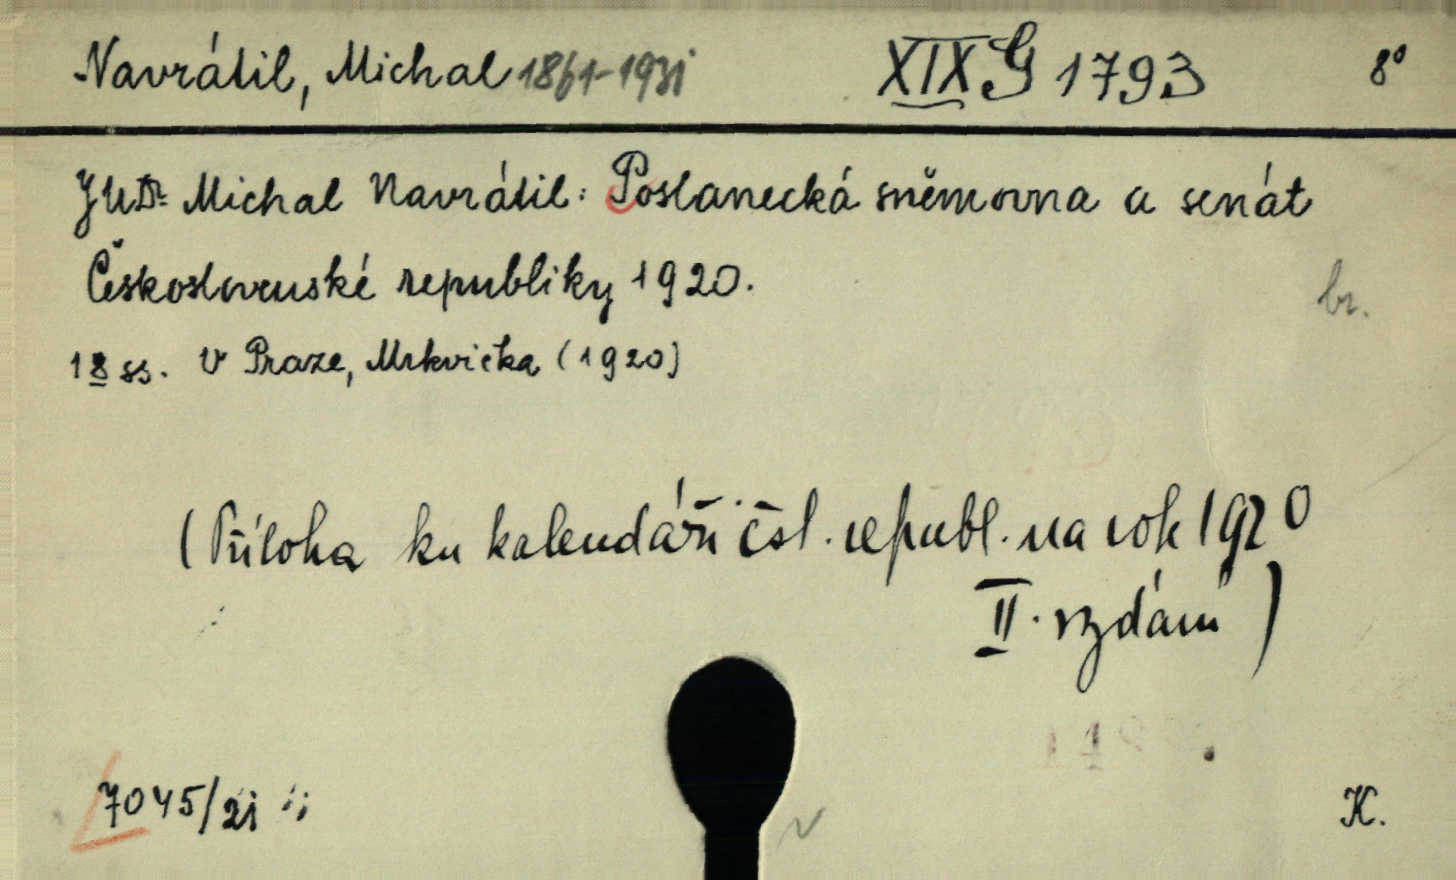 Navrátil, Michal 1861-193 XIX G 1793 8°
JUDr. Michal Navrátil: Poslanecká sněmovna a senát
Československé republiky 1920.
br.
18 ss. V Praze, Mrkvička (1920)
(Příloha ku kalendáři čsl. republ. na rok 1920
II. vydání)
7045/21
K.